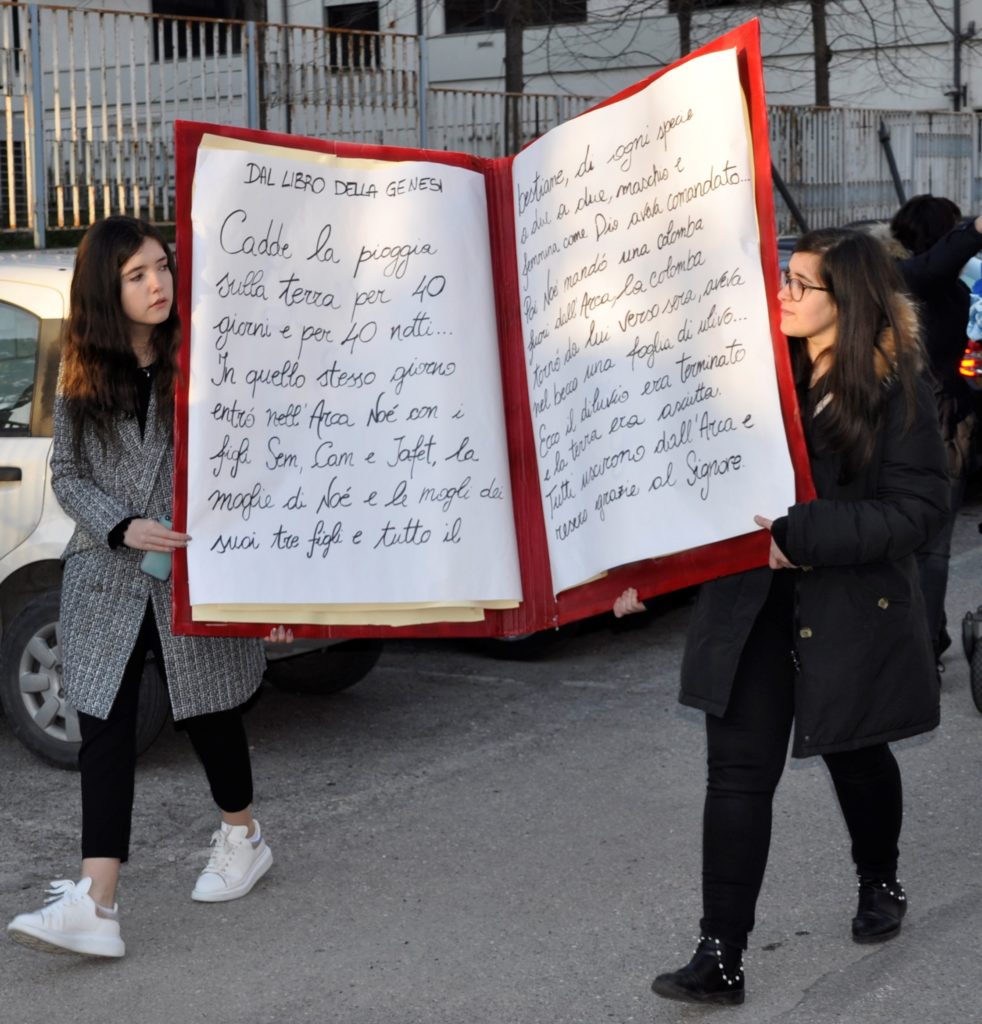 DAL LIBRO DELLA GENESI
Cadde la pioggia
sulla terra per 40
giorni e per 40 notti...
In quello stesso giorno
entró nell'Arca Noé con i
figli Sem, Cam e Jafet, la
moglie di Noé e le mogli dei
suoi tre figli e tutto il
bestiame, di ogni specie
a due a due, maschio e
femmina come Dio aveva comandato...
Poi Noé mandó una colomba
fuori dall'Arca, la colomba
tornó da lui verso sera, aveva
nel becco una foglia di ulivo...
Ecco il diluvio era terminato
e la terra era asciutta.
Tutti uscirono dall'Arca e
resero grazie al Signore.